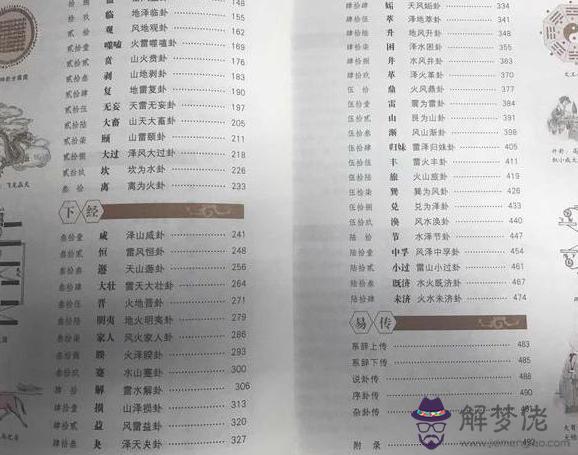 拾捌 148
拾玖 临 地泽临卦 156
贰拾 观 风地观卦 163
贰拾壹 噬嗑 火雷噬嗑卦 169
贰拾贰 贲 山火贲卦 176
贰拾叁 剥 山地剥卦 183
贰拾肆 复 地雷复卦 190
贰拾伍 无妄 天雷无妄卦 197
贰拾陆 大畜 山天大畜卦 205
贰拾柒 颐 山雷颐卦 211
贰拾捌 大过 泽风大过卦 218
贰拾玖 坎 坎为水卦 226
叁拾 离 离为火卦 233
下经
叁拾壹 咸 泽山咸卦 241
叁拾贰 恒 雷风恒卦 249
叁拾叁 遯 天山遯卦 256
叁拾肆 大壮 雷天大壮卦 264
叁拾伍 晋 火地晋卦 271
叁拾陆 明夷 地火明夷卦 279
叁拾柒 家人 风火家人卦 286
叁拾捌 睽 火泽睽卦 293
叁拾玖 蹇 水山蹇卦 300
肆拾 解 雷水解卦 306
肆拾壹 损 山泽损卦 313
肆拾贰 益 风雷益卦 320
肆拾叁 夬 泽天夬卦 327
肆拾肆 姤 天风姤卦 334
肆拾伍 萃 泽地萃卦 341
肆拾陆 升 地风升卦
肆拾柒 困 泽水困卦
肆拾捌 井 水风井卦
肆拾玖 革 泽火革卦 371
伍拾 鼎 火风鼎卦 377
伍拾壹 震 震为雷卦 384
伍拾贰 艮 艮为山卦 391
伍拾叁 渐 风山渐卦 397
伍拾肆 归妹 雷泽归妹卦 405
伍拾伍 丰 雷火丰卦 412
伍拾陆 旅 火山旅卦 419
伍拾柒 巽 巽为风卦 427
伍拾捌 兑 兑为泽卦 433
伍拾玖 涣 风水涣卦 440
陆拾 节 水泽节卦 447
陆拾壹 中孚 风泽中孚卦 454
陆拾贰 小过 雷山小过卦 461
陆拾叁 既济 水火既济卦 467
陆拾肆 未济 火水未济卦 474
易传
系辞上传 483
系辞下传 485
说卦传 488
序卦传 490
杂卦传 491
附录 492
解梦佬
www.jiemenglao.com